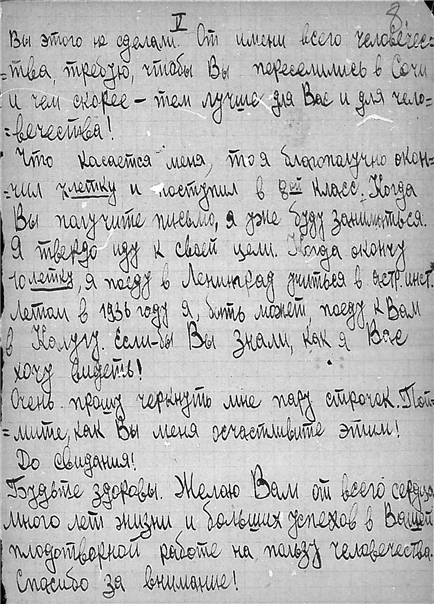 V
8
Вы этого не сделали. От имени всего человечес-
=тва, требую, чтобы Вы переселились в Сочи
и чем скорее – тем лучше для Вас и для чело-
=вечества!
Что касается меня, то я благополучно окон-
=чил 7летку и поступил в 8ой класс. Когда
Вы получите письмо, я уже буду заниматься.
Я твердо иду к своей цели. Когда окончу
10летку, я поеду в Ленинград учиться в астр. инст.
Летом в 1936 году я, быть может, поеду к Вам
в Калугу. Если-бы Вы знали, как я Вас
хочу видеть!
Очень прошу черкнуть мне пару строчек. Пой-
=мите, как Вы меня осчастливите этим!
До свидания!
Будьте здоровы. Желаю Вам от всего сердца
много лет жизни и больших успехов в Вашей
плодотворной работе на пользу человечества.
Спасибо за внимание!